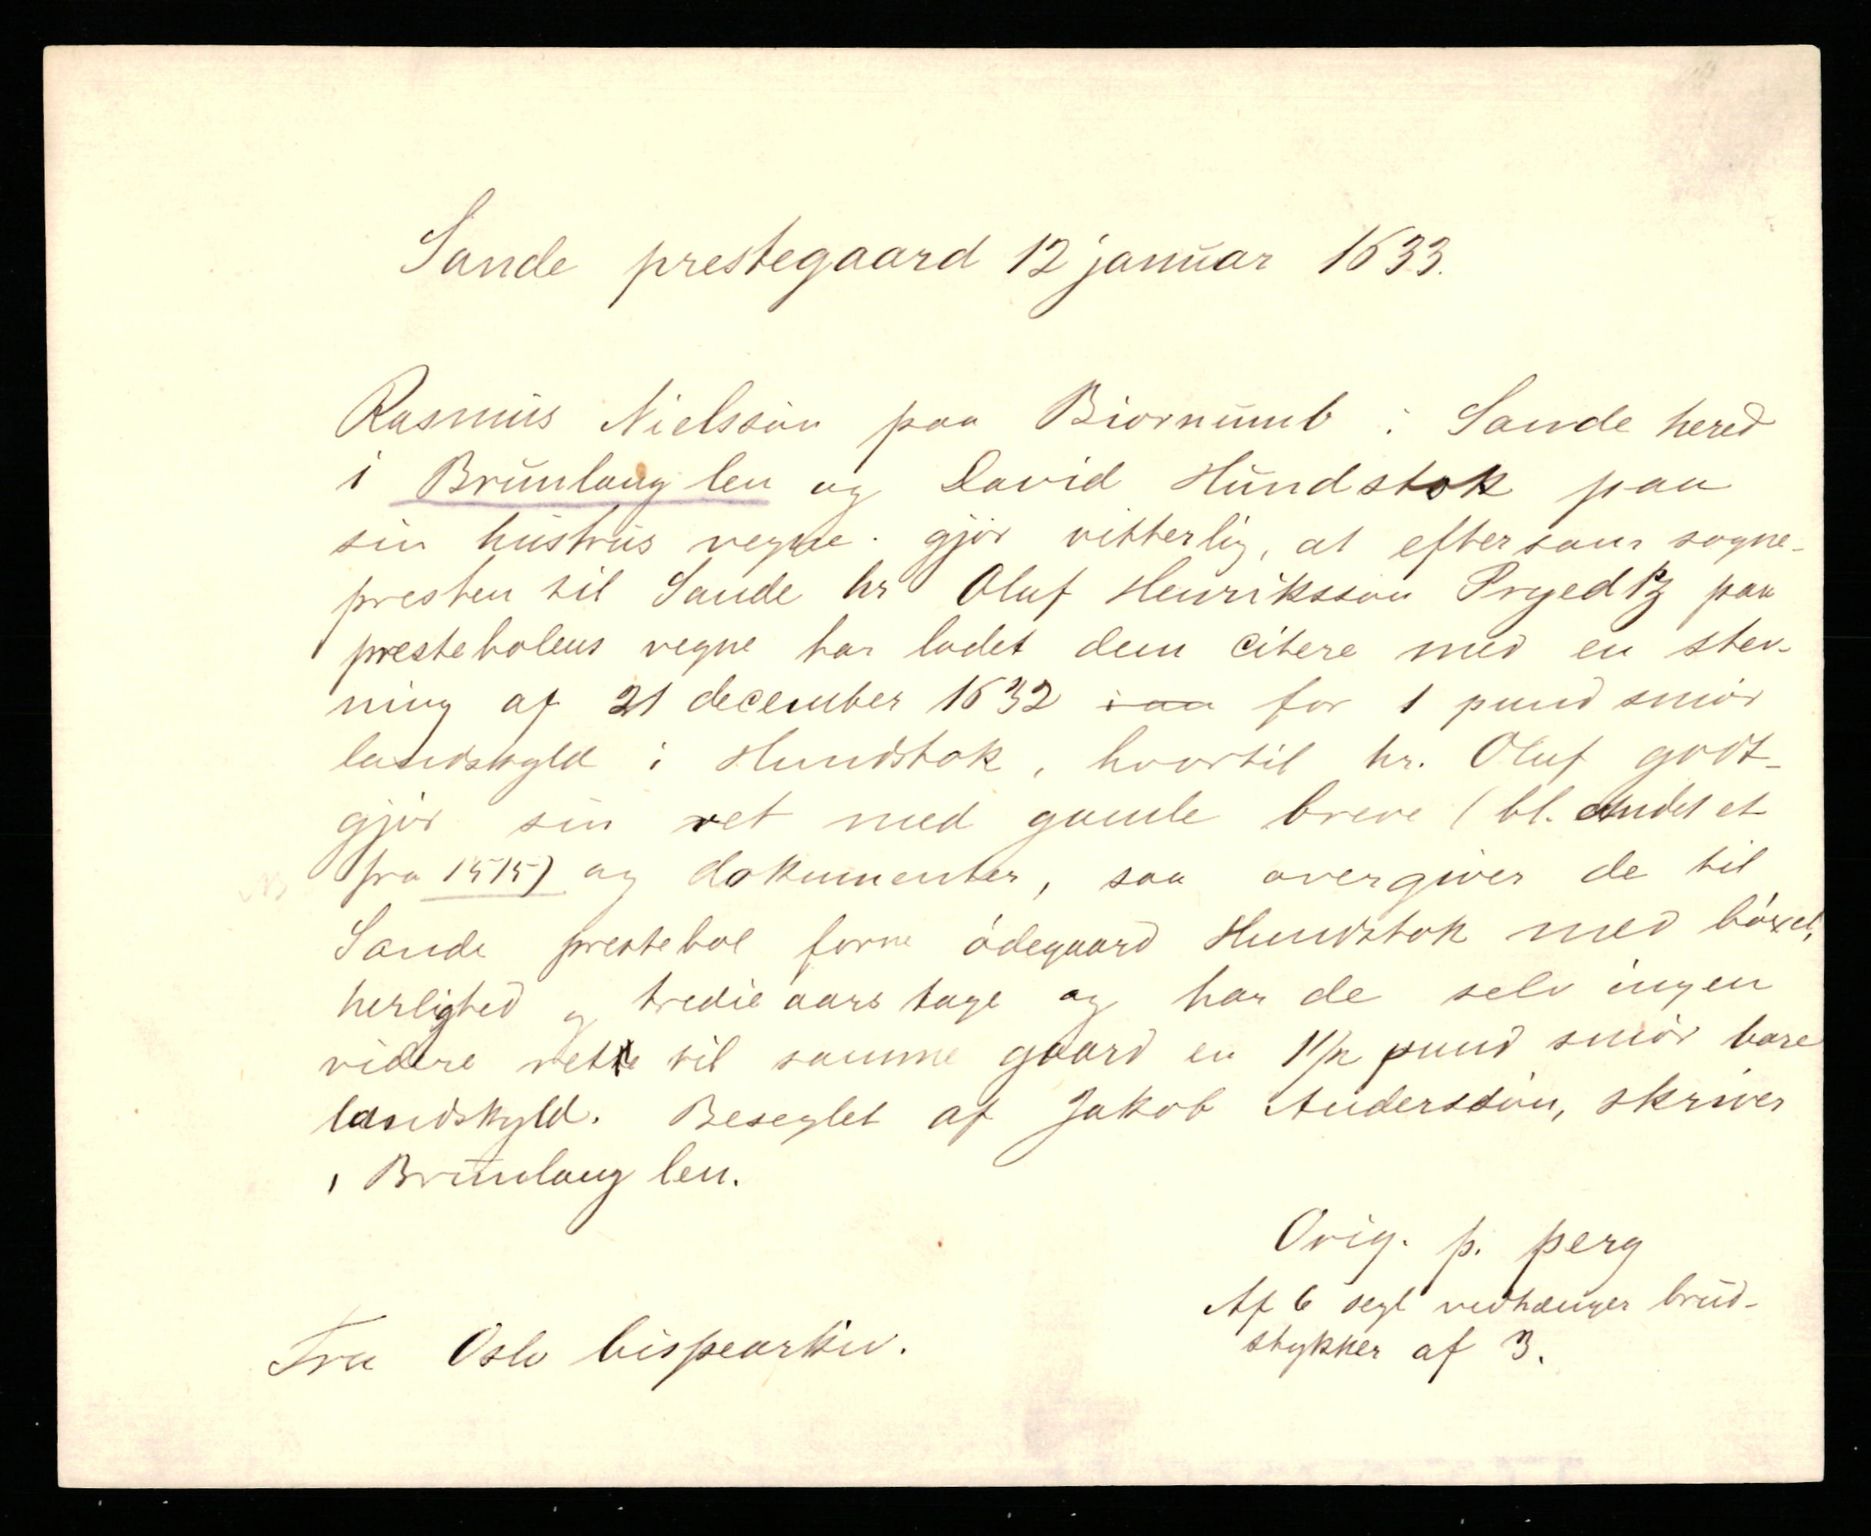 Sande prestegaard 12 januar 1633.
Rasmus Nielssøn paa Biornumb i Sande hered
i Brunlaug len og David Hundstok paa
sin hustrus vegne. gjør vitterlig, at eftersom sogne-
presten til Sande hr Oluf Henrikssøn paa
prestebolens vegne har ladet dem citere med en stev-
ning af 21 december 1632 for 1 pund smør
landskyld i Hundstok, hvortil hr. Oluf godt-
gjør sin ret med gamle breve (bl. andet et
fra 1515) og dokumenter, saa overgiver de til
Sande prestebol forne ødegaard Hundstok med bøxel,
herlighed og tredie aars tage og har de selv ingen
videre rette til samme gaard en 1 1/2 pund smør bare
landskyld. Beseglet af Jakob Anderssøn, skriver
i Brunlaug len.
Orig. p. perg
Af 6 segl vedhænger brud-
stykker af 3.
Fra Oslo bispearkiv.
NB